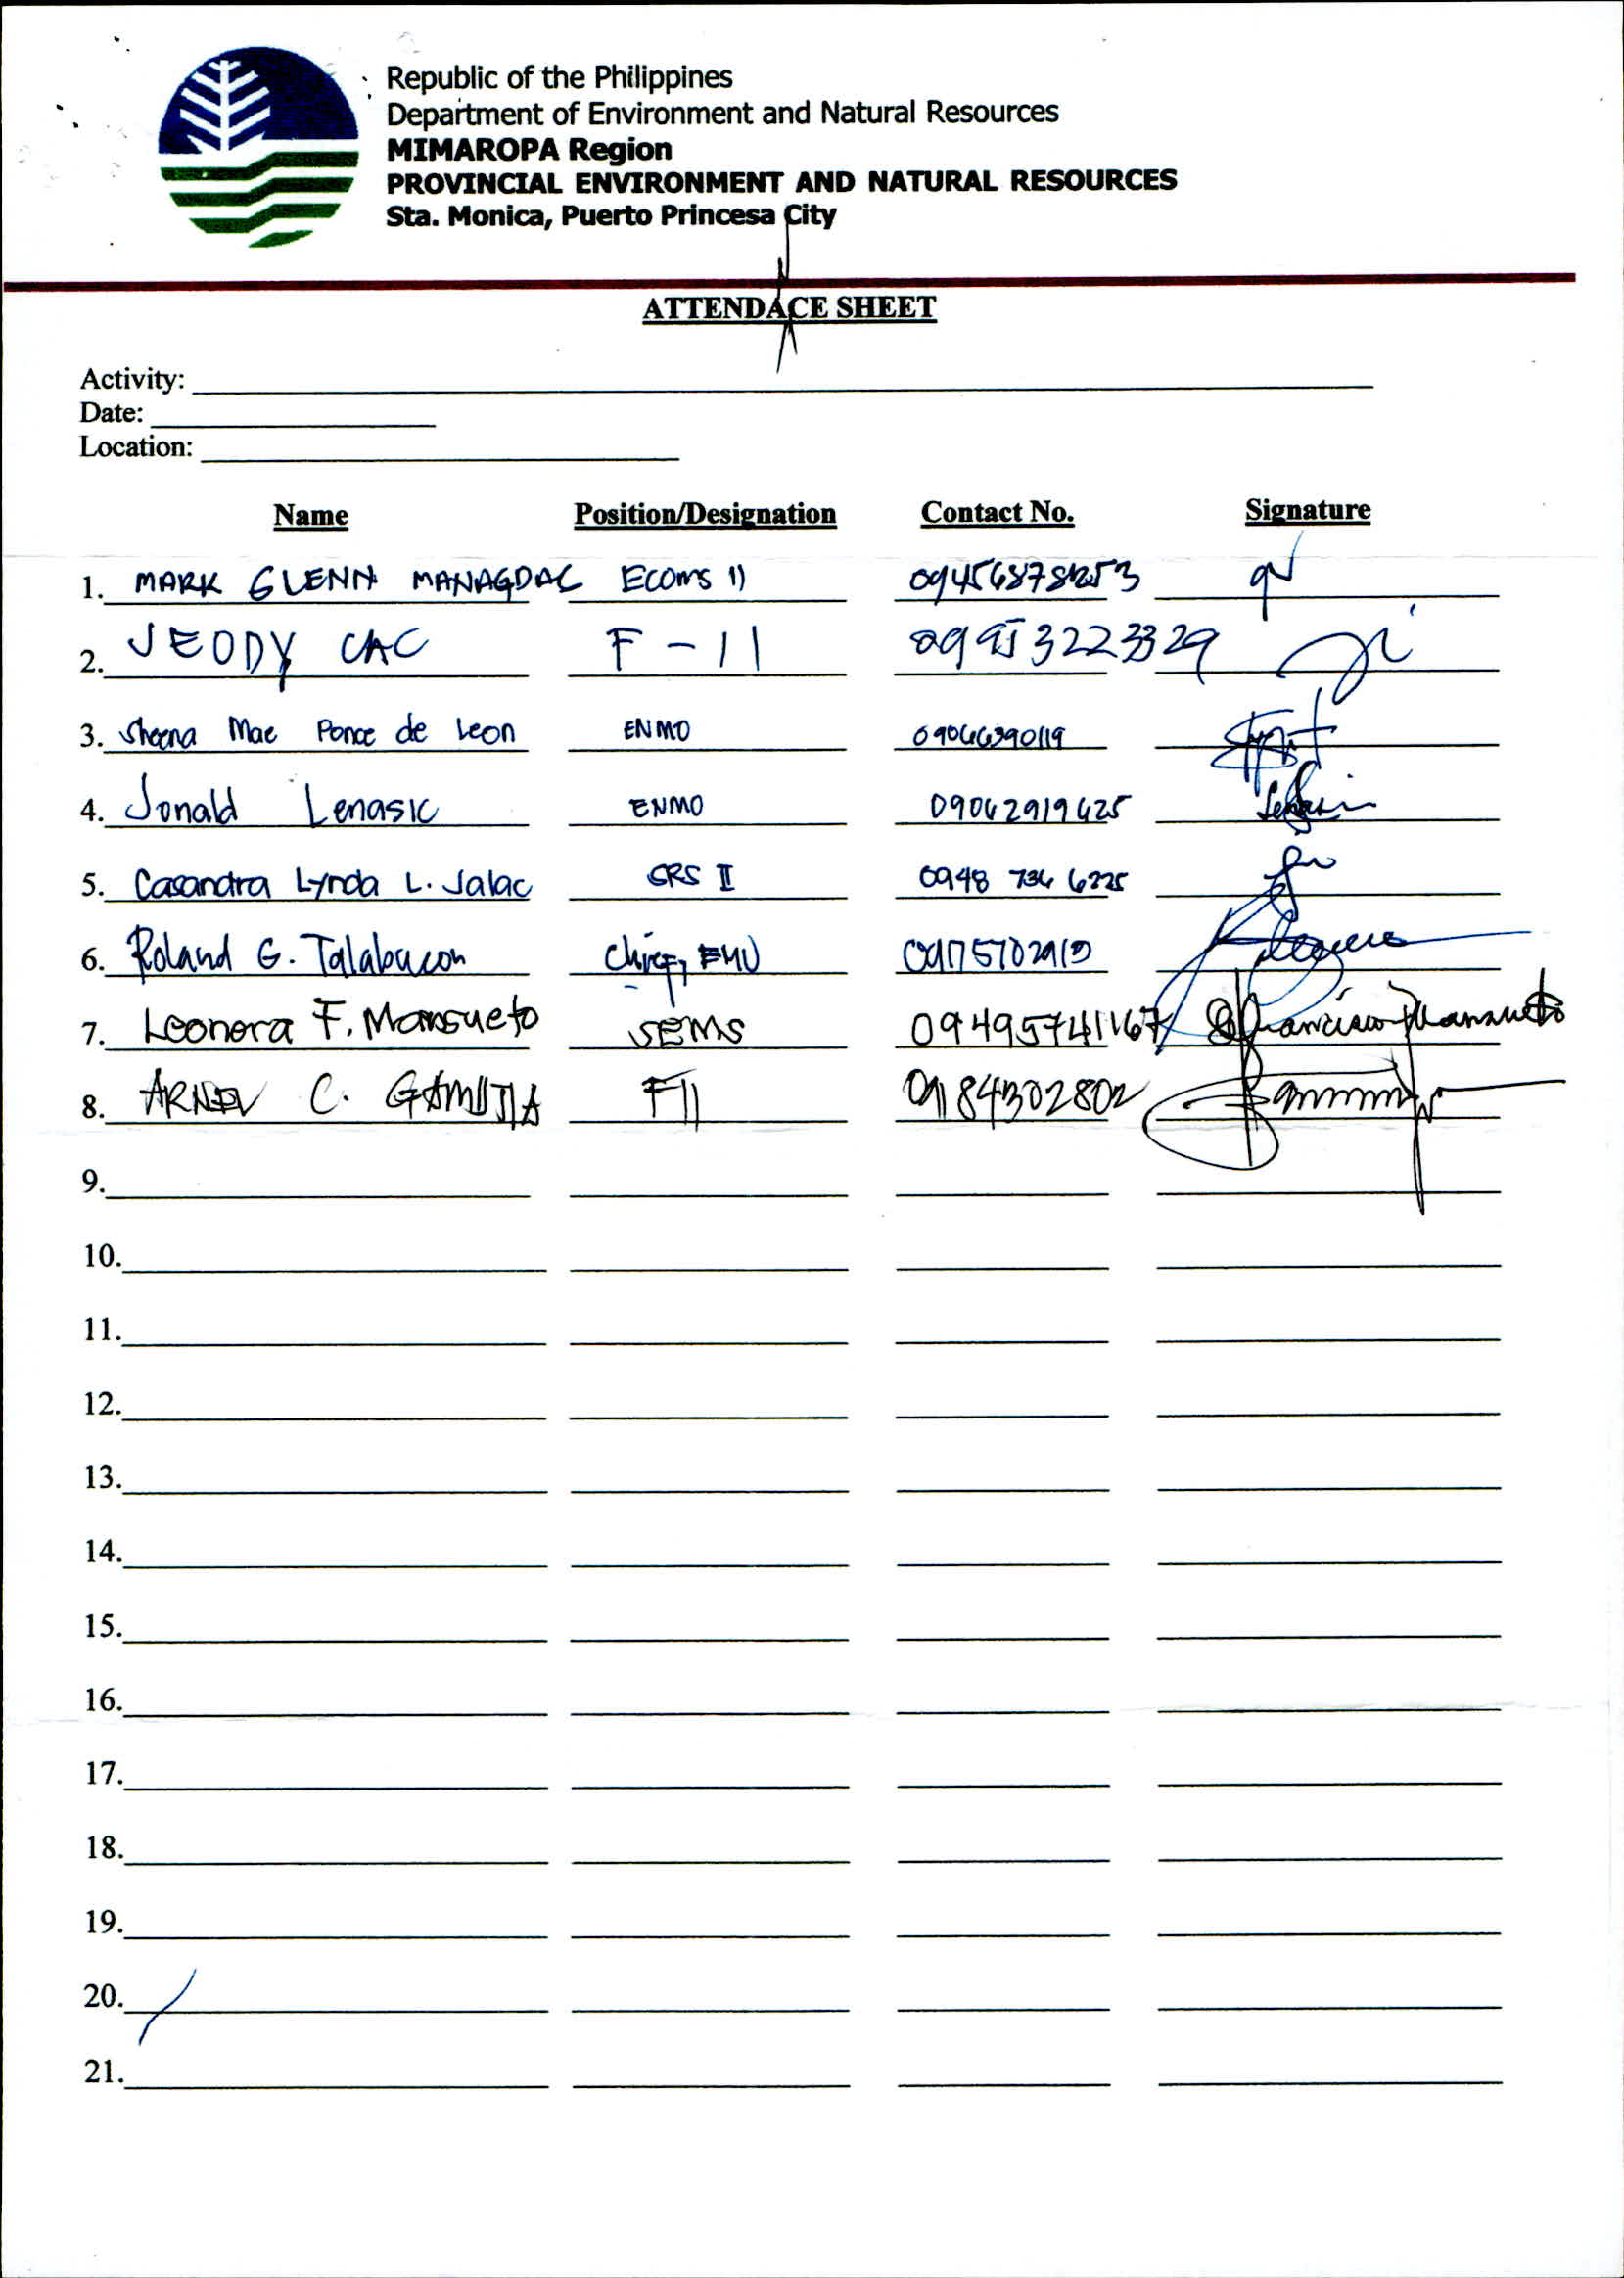 Republic of the Philippines
Department of Environment and Natural Resources
MIMAROPA Region
PROVINCIAL ENVIRONMENT AND NATURAL RESOURCES
Sta. Monica, Puerto Princesa City
ATTENDACE SHEET
Activity:
Date:
Location:
Name Position/Designation Contact No. Signature
1. MARK GLENN MANAGDAG Ecoms II
2. JEODY CAC F - 11 09953223329
3. Sheena Mae Ponce de Leon ENMO 09066390119
4. Jonald Lenasic ENMO 09062919625
5. Casandra Lynda L. Jalac SRS II 0948 736 6225
6. Roland G. Talabucon Chief, EMU
7. Leonora F. Mansueto SEMS 09495741167
8. C. FII 09184302802
9.
10.
11.
12.
13.
14.
15.
16.
17.
18.
19.
20.
21.